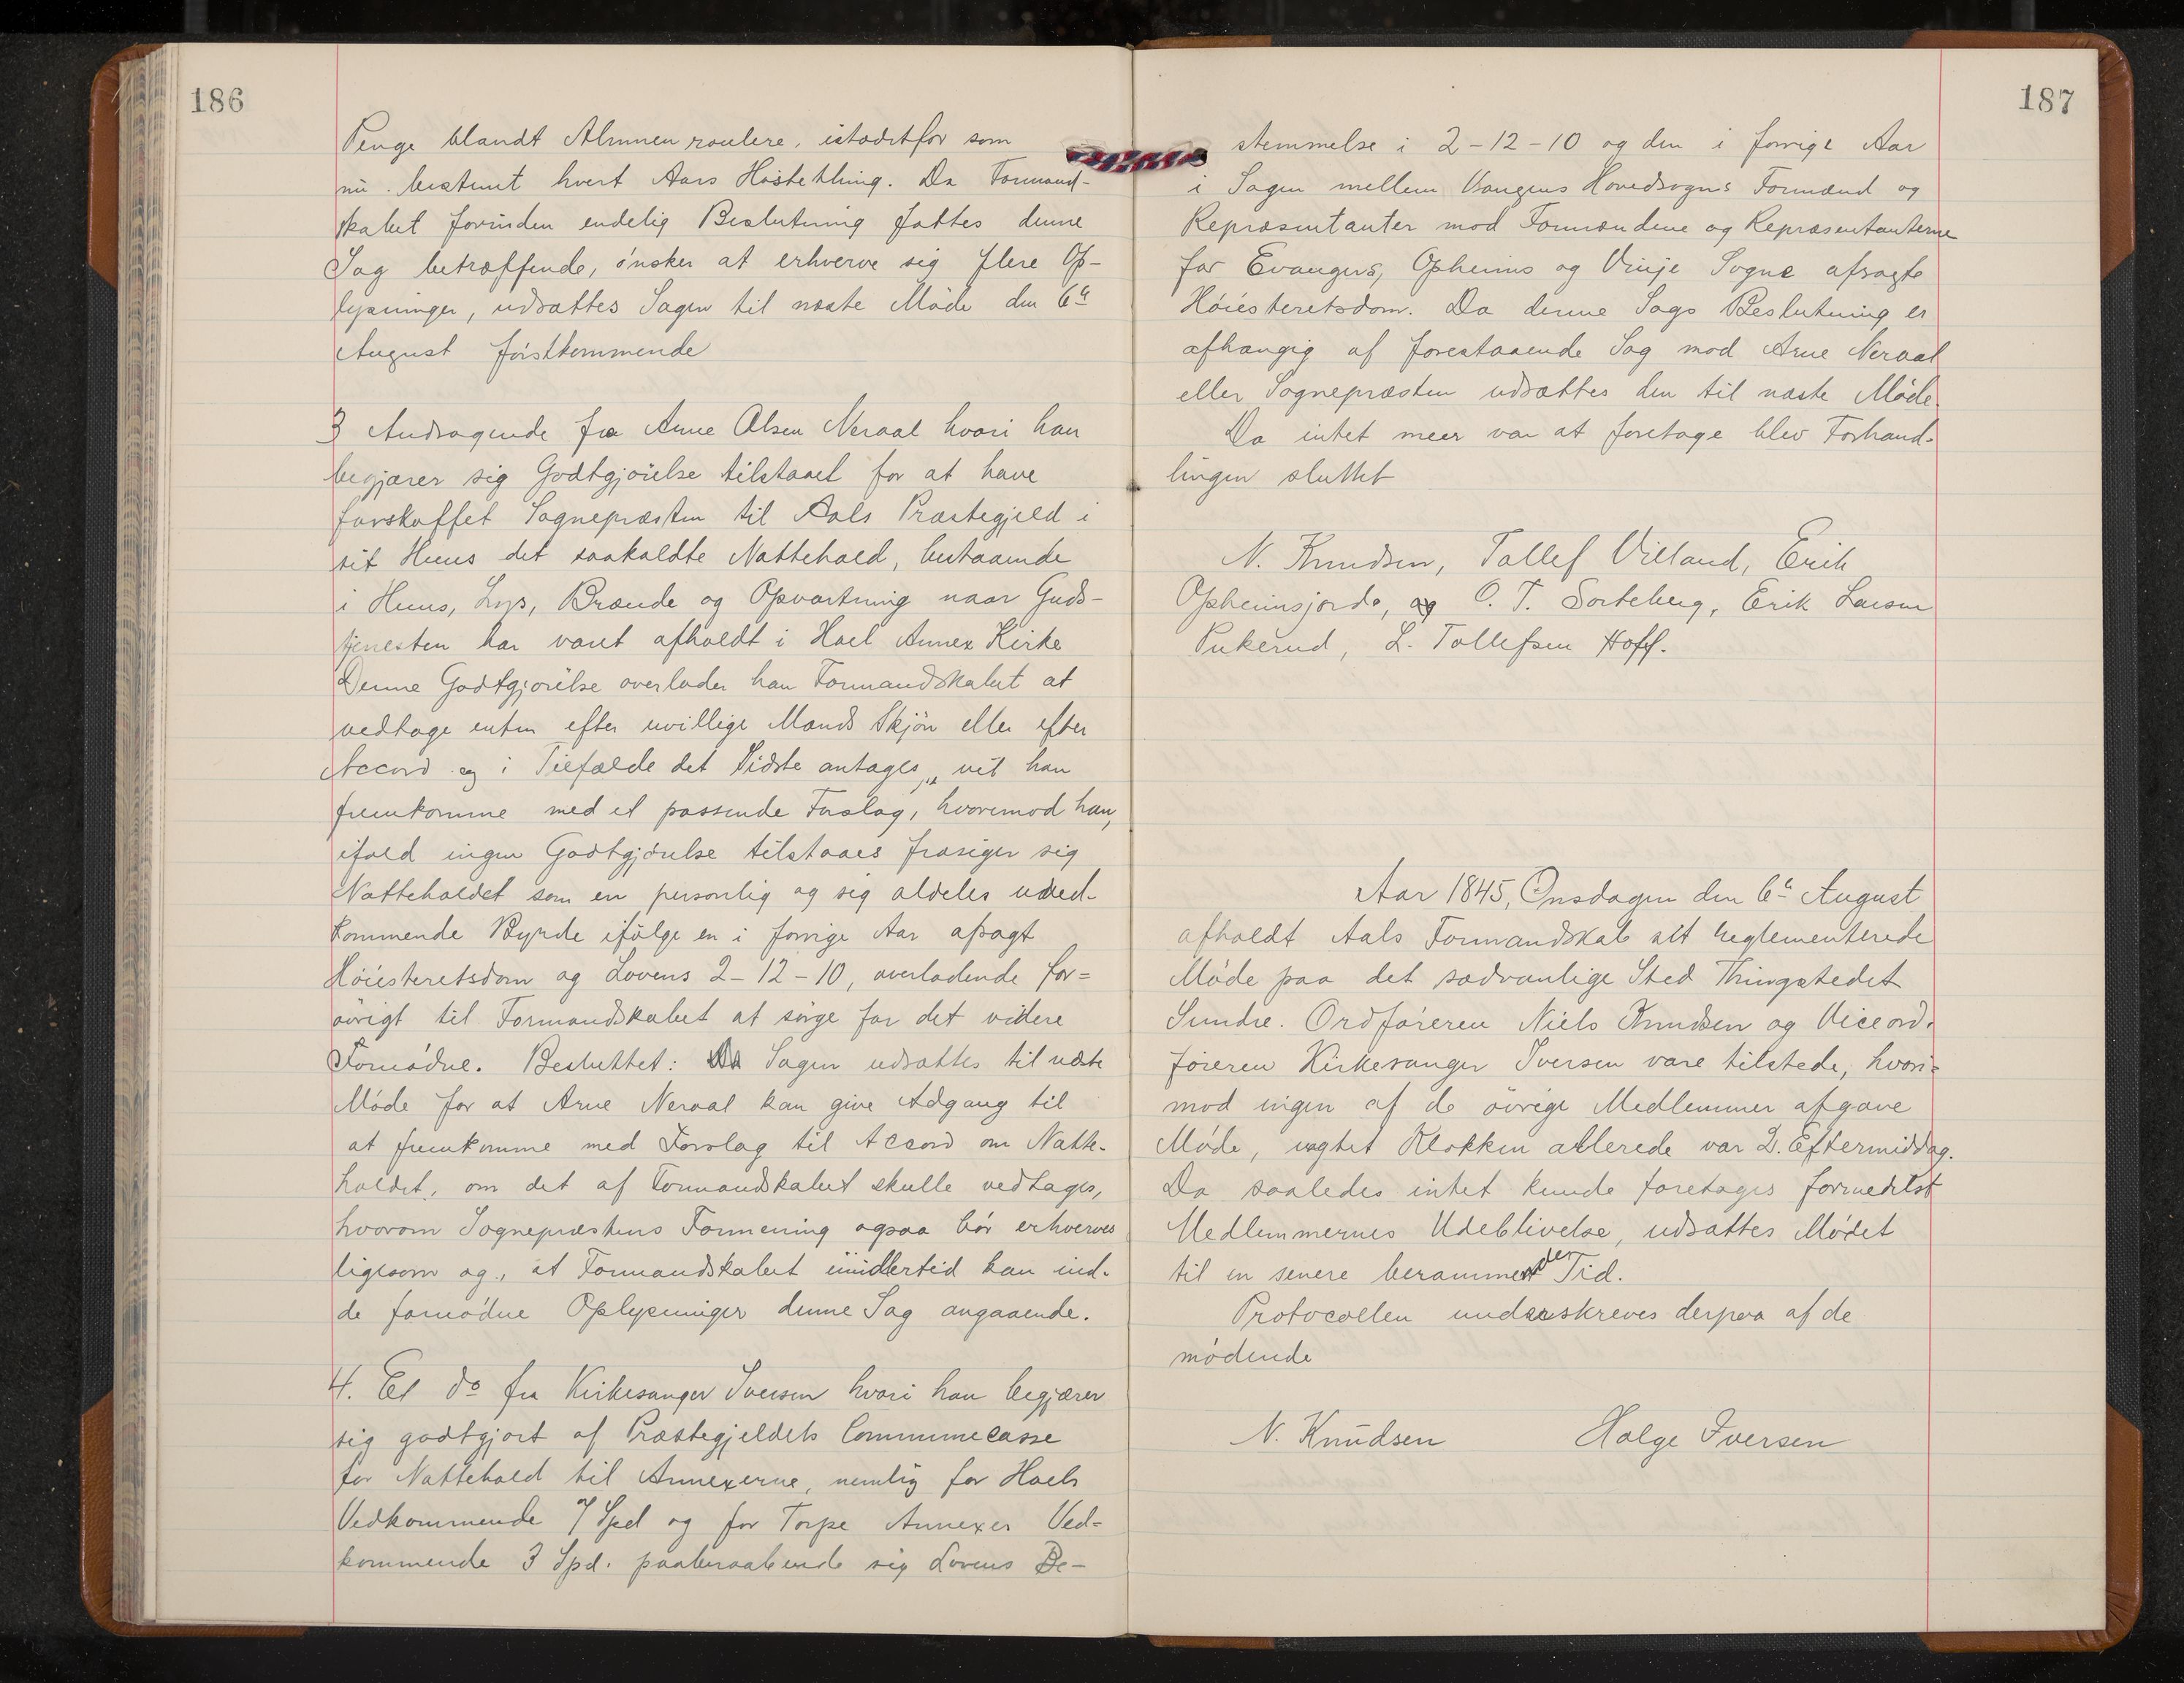 186
Penge blandt Almuen roulere, istadetfor som
nu bestemt hvert Aars Høstething. Da Formand-
skabet forinden endelig Beslutning fattes denne
Sag betræffende, ønsker at erhverve sig flere Op-
lysninger, udsættes Sagen til næste Møde den 6te
August førstkommende
3 Andragende fra Arne Olsen Neraal hvori han
begjærer sig Godtgjørelse tilstaaet for at have
forskaffet Sognepræsten til Aals Præstegjeld i
sit Huus det saakaldte Nattehold, bestaaende
i Huus, Lys, Brænde og Opvartning naar Guds-
tjenesten har været afholdt i Hoel Annex Kirke
Denne Godtgjørelse overlader han Formandskabet at
vedtage enten efter uvillige Mænds Skjøn eller efter
Accord og i Tilfælde det Sidste antages, vil han
fremkomme med et passende Forslag, hvorimod han,
ifald ingen Godtgjørelse tilstaaes frasiger sig
Natteholdet som en personlig og sig aldeles uved-
kommende Byrde ifølge en i forrige Aar afsagt
Høiesteretsdom og Lovens 2-12-10, overladende for=
øvrigt til Formandskabet at sørge for det videre
Fornødne. Besluttet: Sagen udsættes til næste
Møde for at Arne Neraal kan give Adgang til
at fremkomme med Forslag til Accord om Natte-
holdet, om det af Formandskabet skulle vedtages,
hvorom Sognepræstens Formening ogsaa bør erhverves
ligesom og, at Formandskabet imidlertid kan ind-
de fornødne Oplysninger denne Sag angaaende.
4. Et do fra Kirkesanger Iversen hvori han begjærer
sig godtgjort af Præstegjeldets Communecasse
for Nattehold til Annexerne, nemlig for Hoels
Vedkommende 7 Spd og for Torpe Annexes Ved=
kommende 3 Spd. paaberaabende sig Lovens Be-
187
stemmelse i 2-12-10 og den i forrige Aar
i Sagen mellem Vangens Hovedsogns Formænd og
Repræsentanter mod Formændene og Repræsentanterne
for Evangers, Opheims og Vinje Sogne afsagte
Høiesteretsdom. Da denne Sags Beslutning er
afhængig af forestaaende Sag mod Arne Neraal
eller Sognepræsten udsættes den til næste Møde.
Da intet meer var at foretage blev Forhand-
lingen sluttet
N. Knudsen, Tollef Villand, Erik
Opheimsjorde, og O. T. Sorteberg, Erik Larsen
Pukerud, L. Tollefsen Hoff.
Aar 1845, Onsdagen den 6te August
afholdt Aals Formandskab sit reglementerede
Møde paa det sædvanlige Sted Thingstedet
Sundre. Ordføreren Niels Knudsen og Viceord-
føreren Kirkesanger Iversen vare tilstede, hvori=
mod ingen af de øvrige Medlemmer afgave
Møde, uagtet Klokken allerede var 2. Eftermiddag.
Da saaledes intet kunde foretages formedelst
Medlemmernes Udeblivelse, udsattes Mødet
til en senere berammender Tid.
Protocollen underskreves derpaa af de
mødende
N. Knudsen Holge Iversen